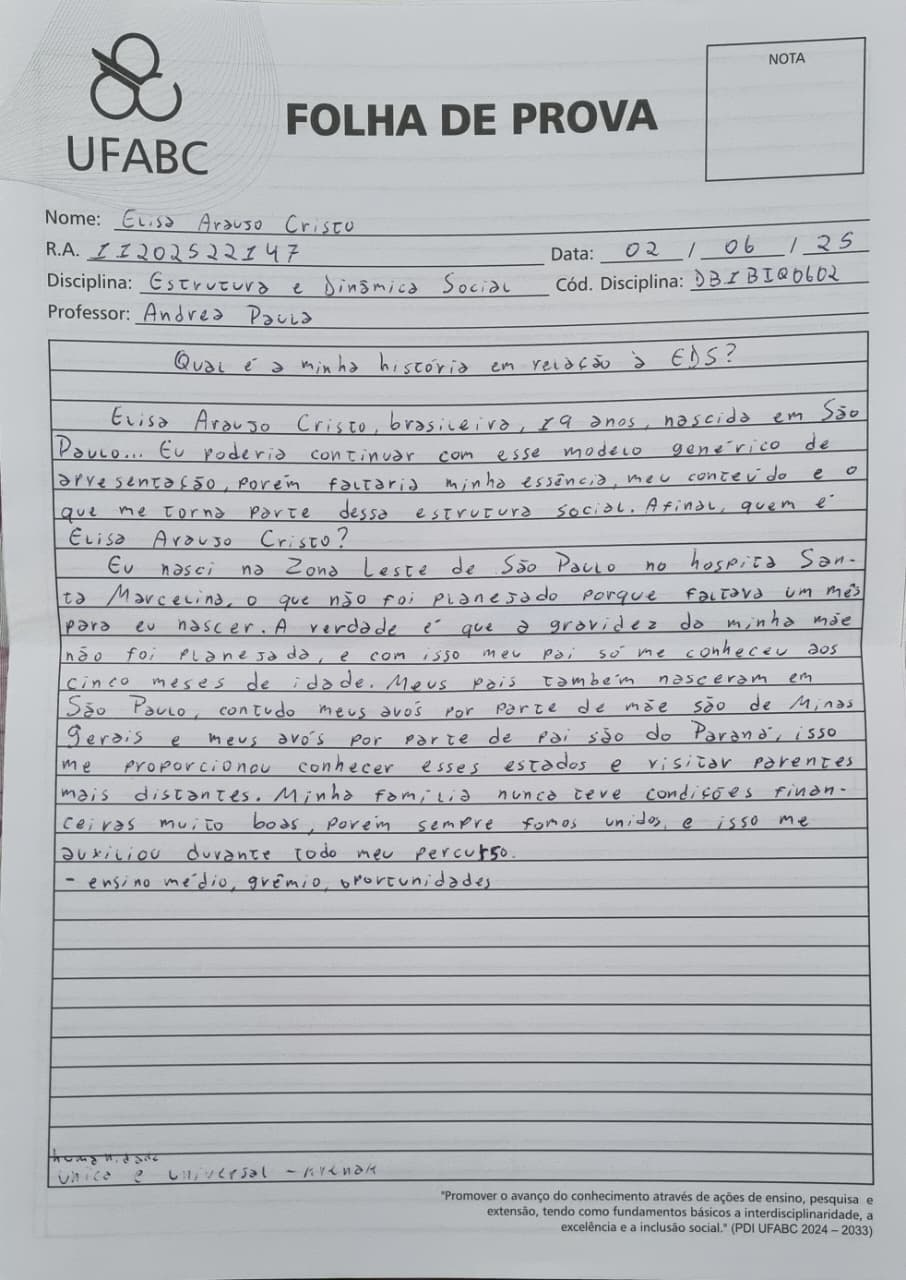 UFABC
FOLHA DE PROVA
NOTA
Nome: Elisa Araujo Cristo
R.A. 11202522147 Data: 02 / 06 / 25
Disciplina: Estrutura e Dinâmica Social Cód. Disciplina: DBIBIQ0602
Professor: Andrea Paula
Qual é a minha história em relação à EDS?
Elisa Araujo Cristo, brasileira, 19 anos, nascida em São
Paulo... Eu poderia continuar com esse modelo genérico de
apresentação, porém faltaria minha essência, meu conteúdo e o
que me torna parte dessa estrutura social. Afinal, quem é
Elisa Araujo Cristo?
Eu nasci na Zona Leste de São Paulo no hospita San-
ta Marcelina, o que não foi planejado porque faltava um mês
para eu nascer. A verdade é que a gravidez da minha mãe
não foi planejada, e com isso meu pai só me conheceu aos
cinco meses de idade. Meus pais também nasceram em
São Paulo, contudo meus avós por parte de mãe são de Minas
Gerais e meus avós por parte de pai são do Paraná, isso
me proporcionou conhecer esses estados e visitar parentes
mais distantes. Minha família nunca teve condições finan-
ceiras muito boas, porém sempre fomos unidos, e isso me
auxiliou durante todo meu percurso.
- ensino médio, grêmio, oportunidades
humanidade
única e universal - Krenak
"Promover o avanço do conhecimento através de ações de ensino, pesquisa e
extensão, tendo como fundamentos básicos a interdisciplinaridade, a
excelência e a inclusão social." (PDI UFABC 2024 – 2033)